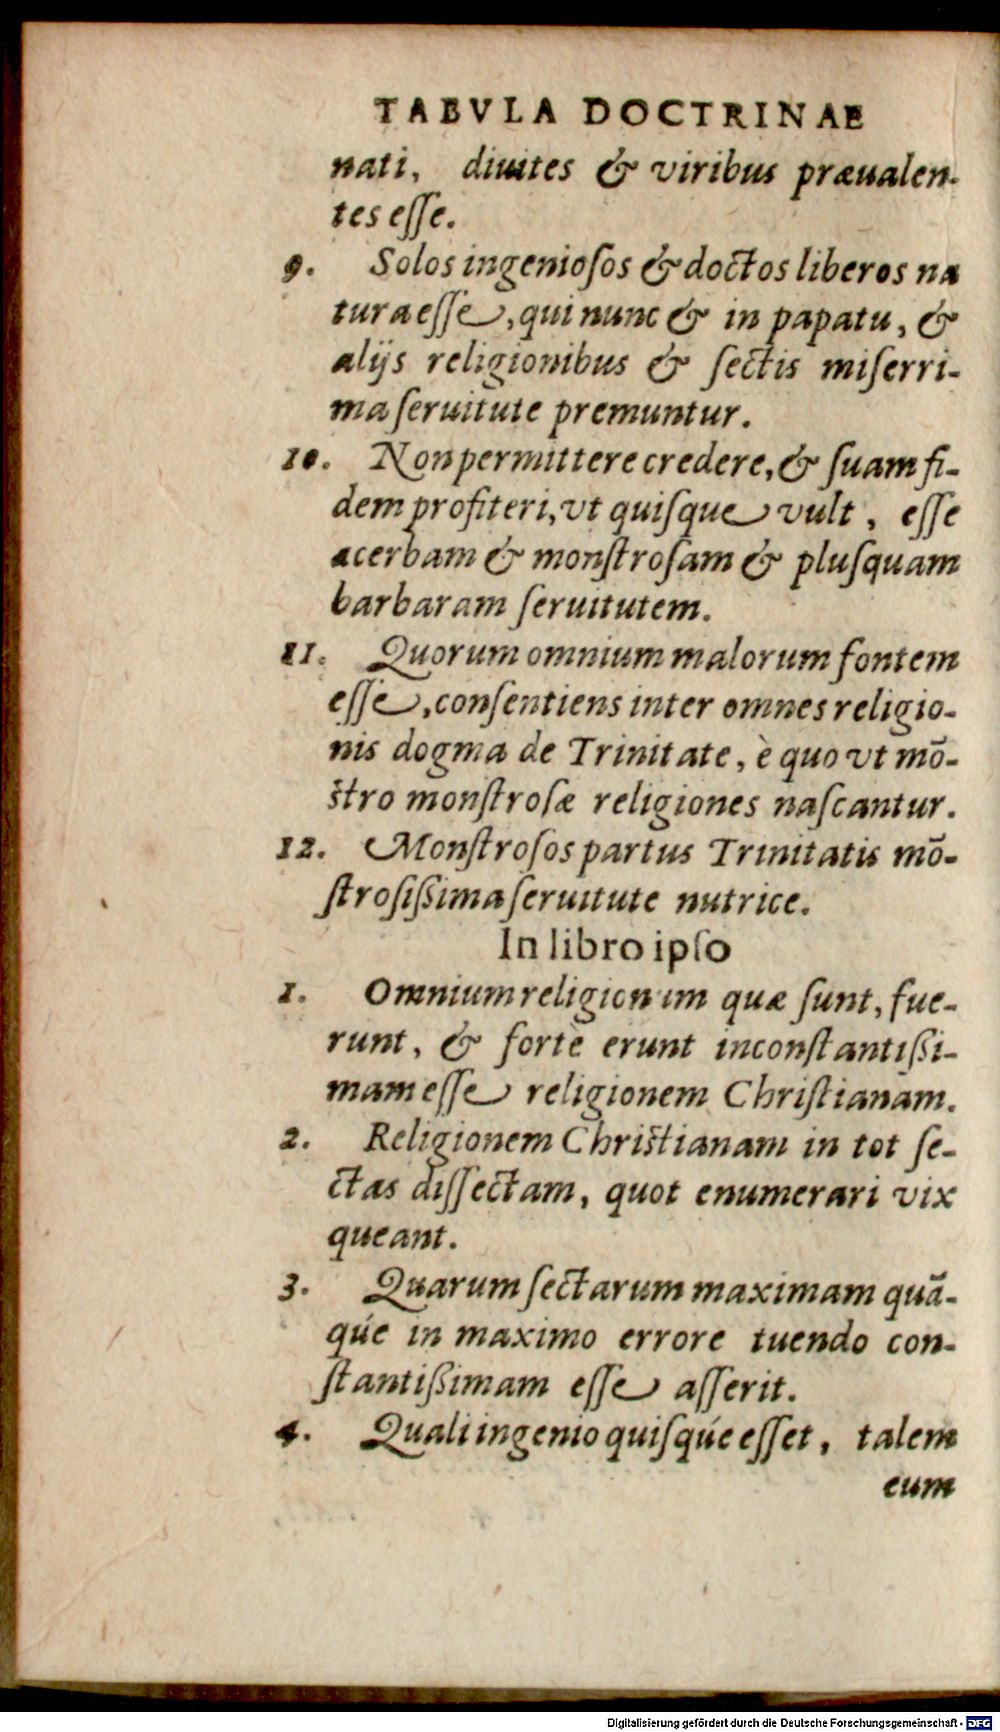 TABVLA DOCTRINAE
nati, diuites & viribus præualen-
tes esse.
9. Solos ingeniosos & doctos liberos na
tura esse, qui nunc & in papatu, &
alijs religionibus & sectis miserri-
ma seruitute premuntur.
10. Non permittere credere, & suam fi-
dem profiteri, vt quisque vult, esse
acerbam & monstrosam & plusquam
barbaram seruitutem.
11. Quorum omnium malorum fontem
esse, consentiens inter omnes religio-
nis dogma de Trinitate, è quo vt mō-
stro monstrosæ religiones nascantur.
12. Monstrosos partus Trinitatis mō-
strosißima seruitute nutrice.
In libro ipso
1. Omnium religionum quæ sunt, fue-
runt, & fortè erunt inconstantißi-
mam esse religionem Christianam.
2. Religionem Christianam in tot se-
ctas dissectam, quot enumerari vix
queant.
3. Quarum sectarum maximam quā-
qúe in maximo errore tuendo con-
stantißimam esse asserit.
4. Quali ingenio quisqúe esset, talem
eum
Digitalisierung gefördert durch die Deutsche Forschungsgemeinschaft - DFG